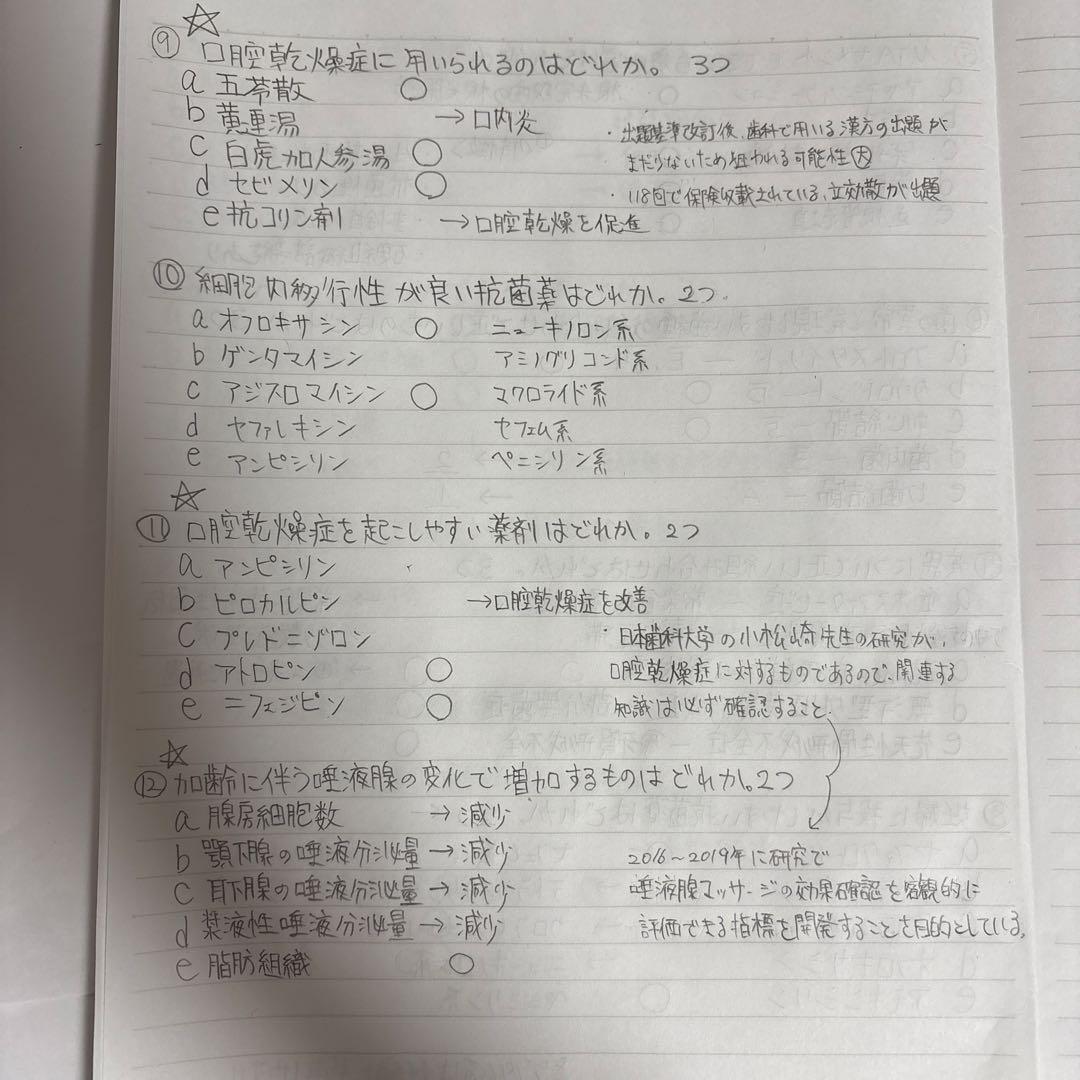 ☆
⑨ 口腔乾燥症に用いられるのはどれか。 3つ
a 五苓散 ○
b 黄連湯 → 口内炎
・出題基準改訂後、歯科で用いる漢方の出題が
c 白虎加人参湯 ○
まだ少ないため狙われる可能性大
d セビメリン ○
・118回で保険収載されている、立効散が出題
e 抗コリン剤 → 口腔乾燥を促進
⑩ 細胞内移行性が良い抗菌薬はどれか。2つ.
a オフロキサシン ○ ニューキノロン系
b ゲンタマイシン アミノグリコシド系
c アジスロマイシン ○ マクロライド系
d セファレキシン セフェム系
e アンピシリン ペニシリン系
☆
⑪ 口腔乾燥症を起こしやすい薬剤はどれか。2つ
a アンピシリン
b ピロカルピン → 口腔乾燥症を改善
c プレドニゾロン
・日本歯科大学の小松崎先生の研究が、
d アトロピン ○
口腔乾燥症に対するものであるので、関連する
e ニフェジピン ○
知識は必ず確認すること、
☆
⑫ 加齢に伴う唾液腺の変化で増加するものはどれか。2つ
a 腺房細胞数 → 減少
b 顎下腺の唾液分泌量 → 減少
2016〜2019年に研究で
c 耳下腺の唾液分泌量 → 減少
唾液腺マッサージの効果確認を客観的に
d 漿液性唾液分泌量 → 減少
評価できる指標を開発することを目的としている。
e 脂肪組織 ○